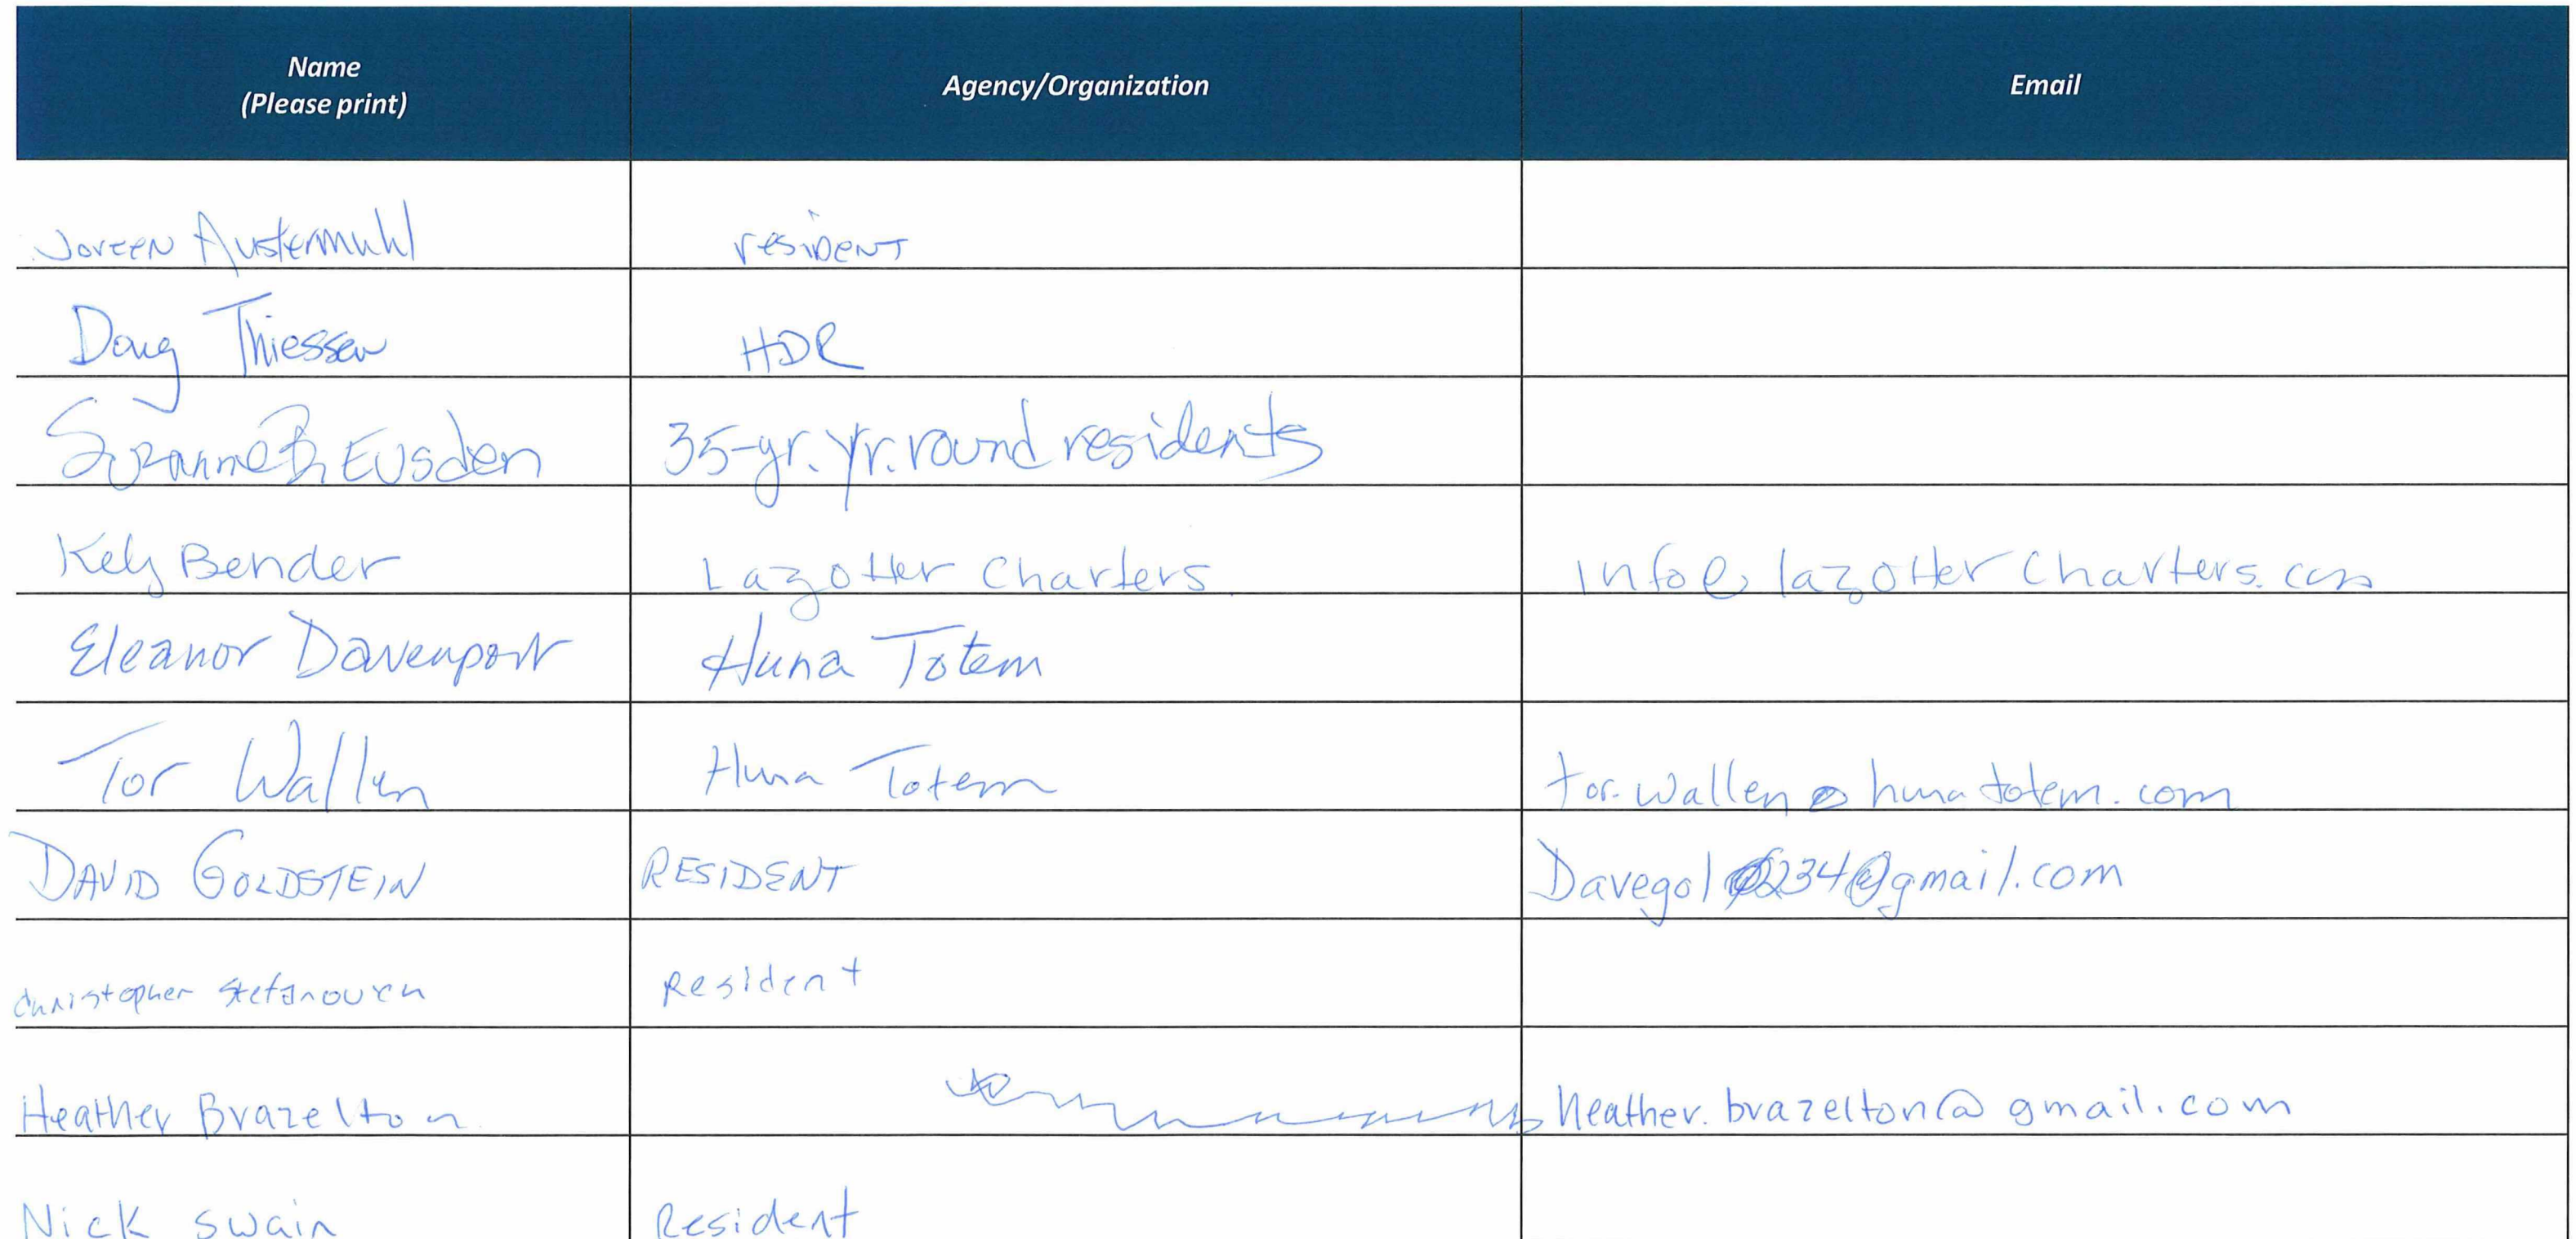 Name
(Please print)
Agency/Organization
Email
Joreen Austermuhl resident
Doug Thiessen HDR
Suzanne B. Eusden 35-yr. yr. round residents
Kely Bender Lazotter Charters info@lazotterCharters.com
Eleanor Davenport Huna Totem
Tor Wallen Huna Totem tor.wallen@hunatotem.com
DAVID GOLDSTEIN RESIDENT @gmail.com
Christopher Resident
Heather Brazelton heather.brazelton@gmail.com
Nick Swain Resident